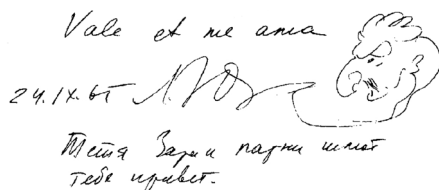 Vale et me ama
24.IX.65
Тетя Зара и парни шлют
тебе привет.